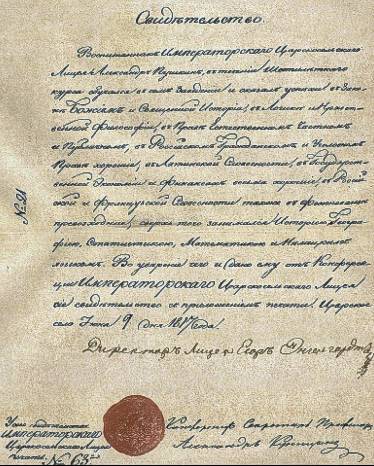 Свидѣтельство.
Воспитанникъ Императорскаго Царскосельскаго
Лицея Александръ Пушкинъ, въ теченіи шестилѣтняго
курса обучался въ семъ Заведеніи и оказалъ успѣхи: въ Зако-
нѣ Божіемъ и Священной Исторіи, въ Логикѣ и Нравст-
венной Философіи, въ Правѣ Естественномъ Частномъ
и Публичномъ, въ Россійскомъ Гражданскомъ и Уголовномъ
Правѣ хорошіе; въ Латинской Словесности, въ Государст-
венной Экономіи и Финансахъ весьма хорошіе; въ Россій-
ской и Французской Словесности также въ Фехтованіи
превосходные; сверхъ того занимался Исторіею, Геогра-
фіею, Статистикою, Математикою и Нѣмецкимъ
языкомъ. Во увѣреніе чего и дано ему отъ Конферен-
ціи Императорскаго Царскосельскаго Лицея
сіе свидѣтельство съ приложеніемъ печати. Царское
село Іюня 9 дня 1817 года.
№ 21
Директоръ Лицея Егоръ Энгельгардтъ
Конференцъ Секретарь Профессоръ
Александръ Куницынъ
Императорскаго
Царскосельскаго Лицея
печать. № 63